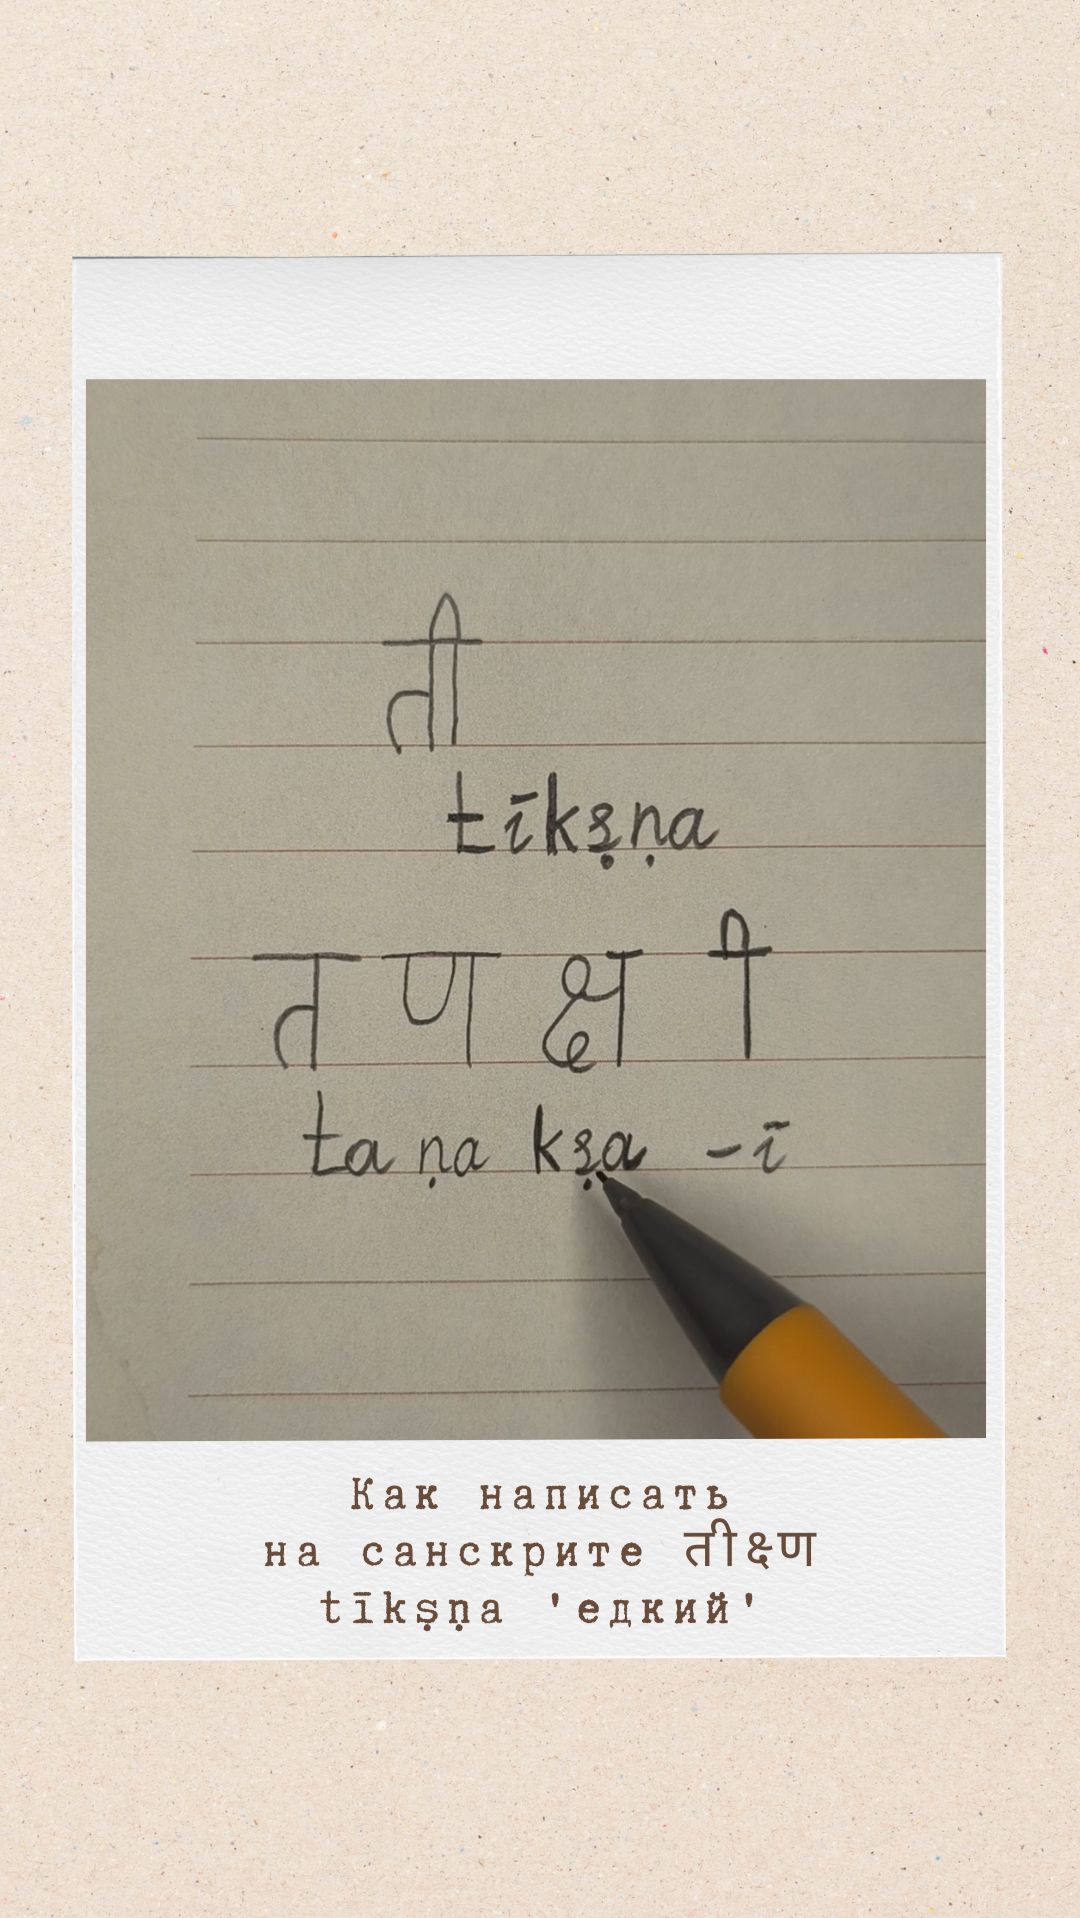 ती
tīkṣṇa
त ण क्ष ी
ta ṇa kṣa -ī
Как написать
на санскрите तीक्ष्ण
tīkṣṇa 'едкий'